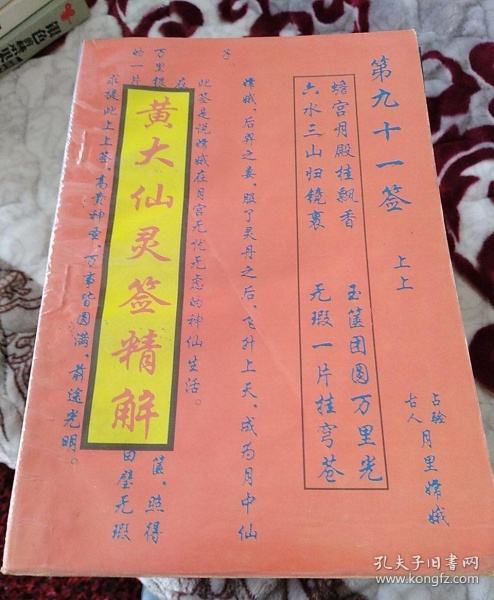 第九十一签 上上
占验古人 月里嫦娥
蟾宫月殿桂飘香 玉箧团圆万里光
六水三山归镜裏 无瑕一片挂穹苍
嫦娥,后羿之妻,服了灵丹之后,飞升上天,成为月中仙
子
此签是说嫦娥在月宫无忧无虑的神仙生活。
在
万里 箧,照得
的一片 璧无瑕
求 此上上签,高贵神圣,万事皆圆满,前途光明。
黄大仙灵签精解
孔夫子旧书网
www.kongfz.com